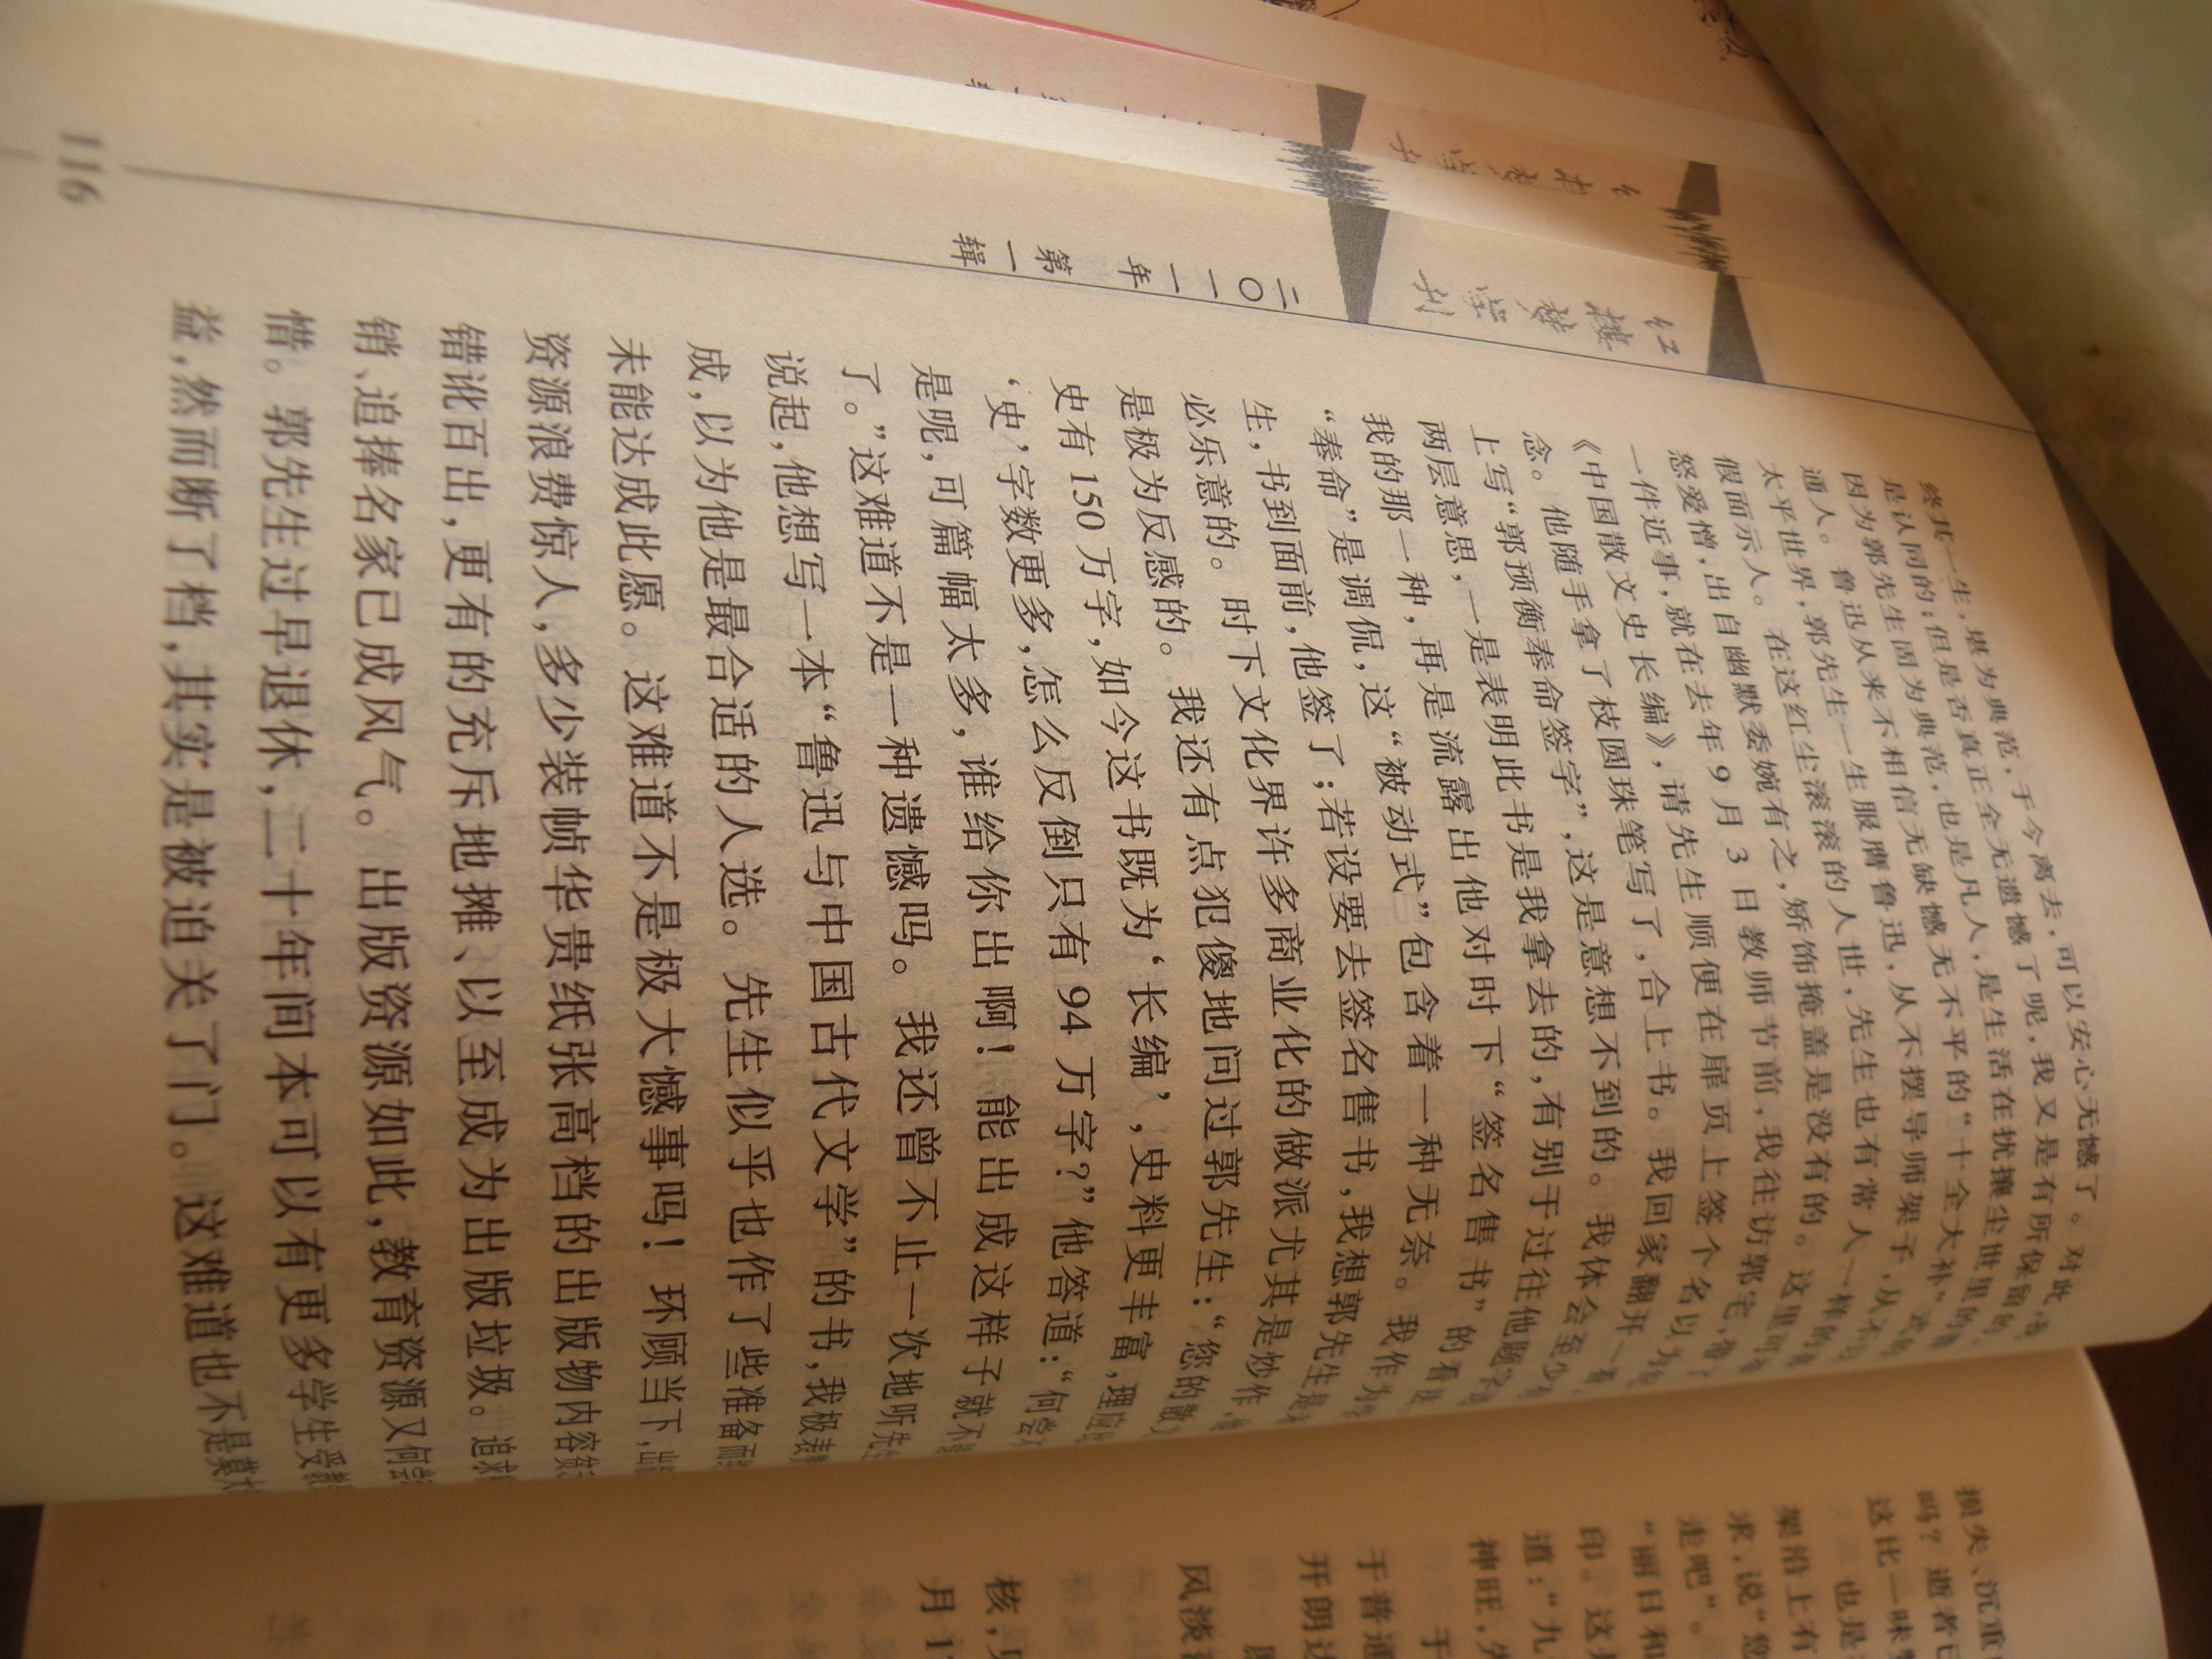 红楼梦学刊
二〇一一年第一辑
终其一生，堪为典范，于今离去，可以安心无憾了。对此，
是认同的；但是否真正全无遗憾了呢，我又是有所保留的，
因为郭先生固为典范，也是凡人，是生活在扰攘尘世里的
通人。鲁迅从来不相信无缺憾无不平的“十全大补”
太平世界，郭先生一生服膺鲁迅，从不摆导师架子，从不以
假面示人。在这红尘滚滚的人世，先生也有常人一样的喜
怒爱憎，出自幽默委婉有之，矫饰掩盖是没有的。这里
一件近事，就在去年9月3日教师节前，我往访郭宅，带了
《中国散文史长编》，请先生顺便在扉页上签个名以为纪
念。他随手拿了枝圆珠笔写了，合上书。我回家翻开一看，
上写“郭预衡奉命签字”，这是意想不到的。我体会至少有
两层意思，一是表明此书是我拿去的，有别于过往他题字
我的那一种，再是流露出他对时下“签名售书”的看法
“奉命”是调侃，这“被动式”包含着一种无奈。我作为学
生，书到面前，他签了；若设要去签名售书，我想郭先生是
必乐意的。时下文化界许多商业化的做派尤其是炒作，
是极为反感的。我还有点犯傻地问过郭先生：“您的散文
史有150万字，如今这书既为‘长编’，史料更丰富，理应比
‘史’字数更多，怎么反倒只有94万字？”他答道：“何尝不
是呢，可篇幅太多，谁给你出啊！能出成这样子就不
了。”这难道不是一种遗憾吗。我还曾不止一次地听先生
说起，他想写一本“鲁迅与中国古代文学”的书，我极表
成，以为他是最合适的人选。先生似乎也作了些准备而
未能达成此愿。这难道不是极大憾事吗！环顾当下，出
资源浪费惊人，多少装帧华贵纸张高档的出版物内容
错讹百出，更有的充斥地摊、以至成为出版垃圾。追求
销、追捧名家已成风气。出版资源如此，教育资源又何尝
惜。郭先生过早退休，二十年间本可以有更多学生受教
益，然而断了档，其实是被迫关了门。这难道也不是莫大
116
损失、沉重
吗？逝者已
这比一味
也是
架沿上有
求，说“您
走吧”。
“丽日和
印。这
道：“九
神旺，
于
于普通
开朗达
风淡
核，
月1